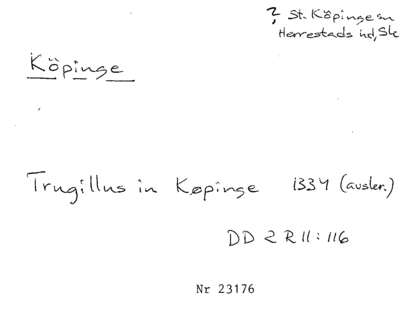 ? St. Köpinge sn
Herrestads hd, Sk
Köpinge
Trugillus in Køpinge 1334 (avskr.)
DD 2 R 11:116
Nr 23176